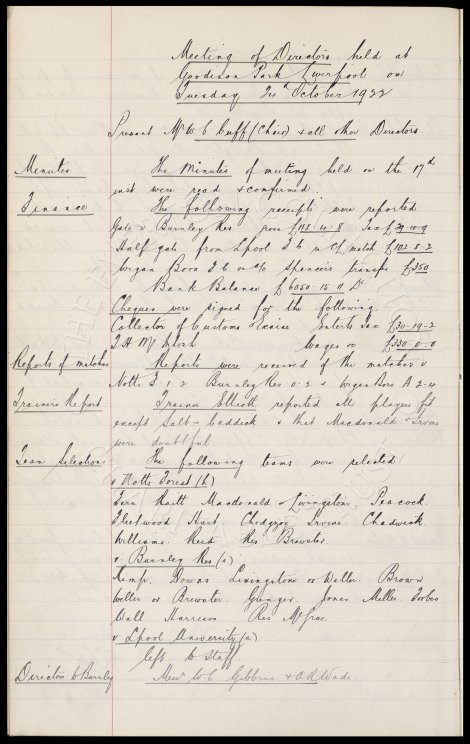 Meeting of Directors held at
Goodison Park Liverpool on
Tuesday 24th October 1922
Present Mr W C Cuff (Chair) & all other Directors
Minutes The Minutes of meeting held on the 17th
inst were read & confirmed.
Finance The following receipts were reported
Gate v Burnley Res £118.4.8 Tax £29.10.9
Half gate from Lpool F C re C/ match £102.8.2
Wigan Boro F C on a/c Spencer's transfer £350
Bank Balance £6050.15.11 Dr
Cheques were signed for the following
Collector of Customs & Excise Enterts Tax £30.19.2
Wages a/c £330.0.0
Reports of matches Reports were received of the matches v
Notts F 1.2 Burnley Res 0.2 & Wigan Boro A 2.4
Trainers Report Trainer Elliott reported all players fit
except Salt & Caddick & that Macdonald & Irvine
were doubtful
Team Selection The following teams were selected
v Notts Forest (h)
Fern Raitt Macdonald or Livingston. Peacock.
Fleetwood Hart. Chedgzoy Irvine Chadwick
Williams. Reid Res Brewster.
v. Burnley Res (a)
Kemp. Downs Livingston or Weller. Brown
Weller or Brewster. Grenyer. Jones Miller Forbes
Wall Harrison Res McGrae
v Lpool University (a)
left to Staff
Director to Burnley Messrs W C Gibbins & A R Wade